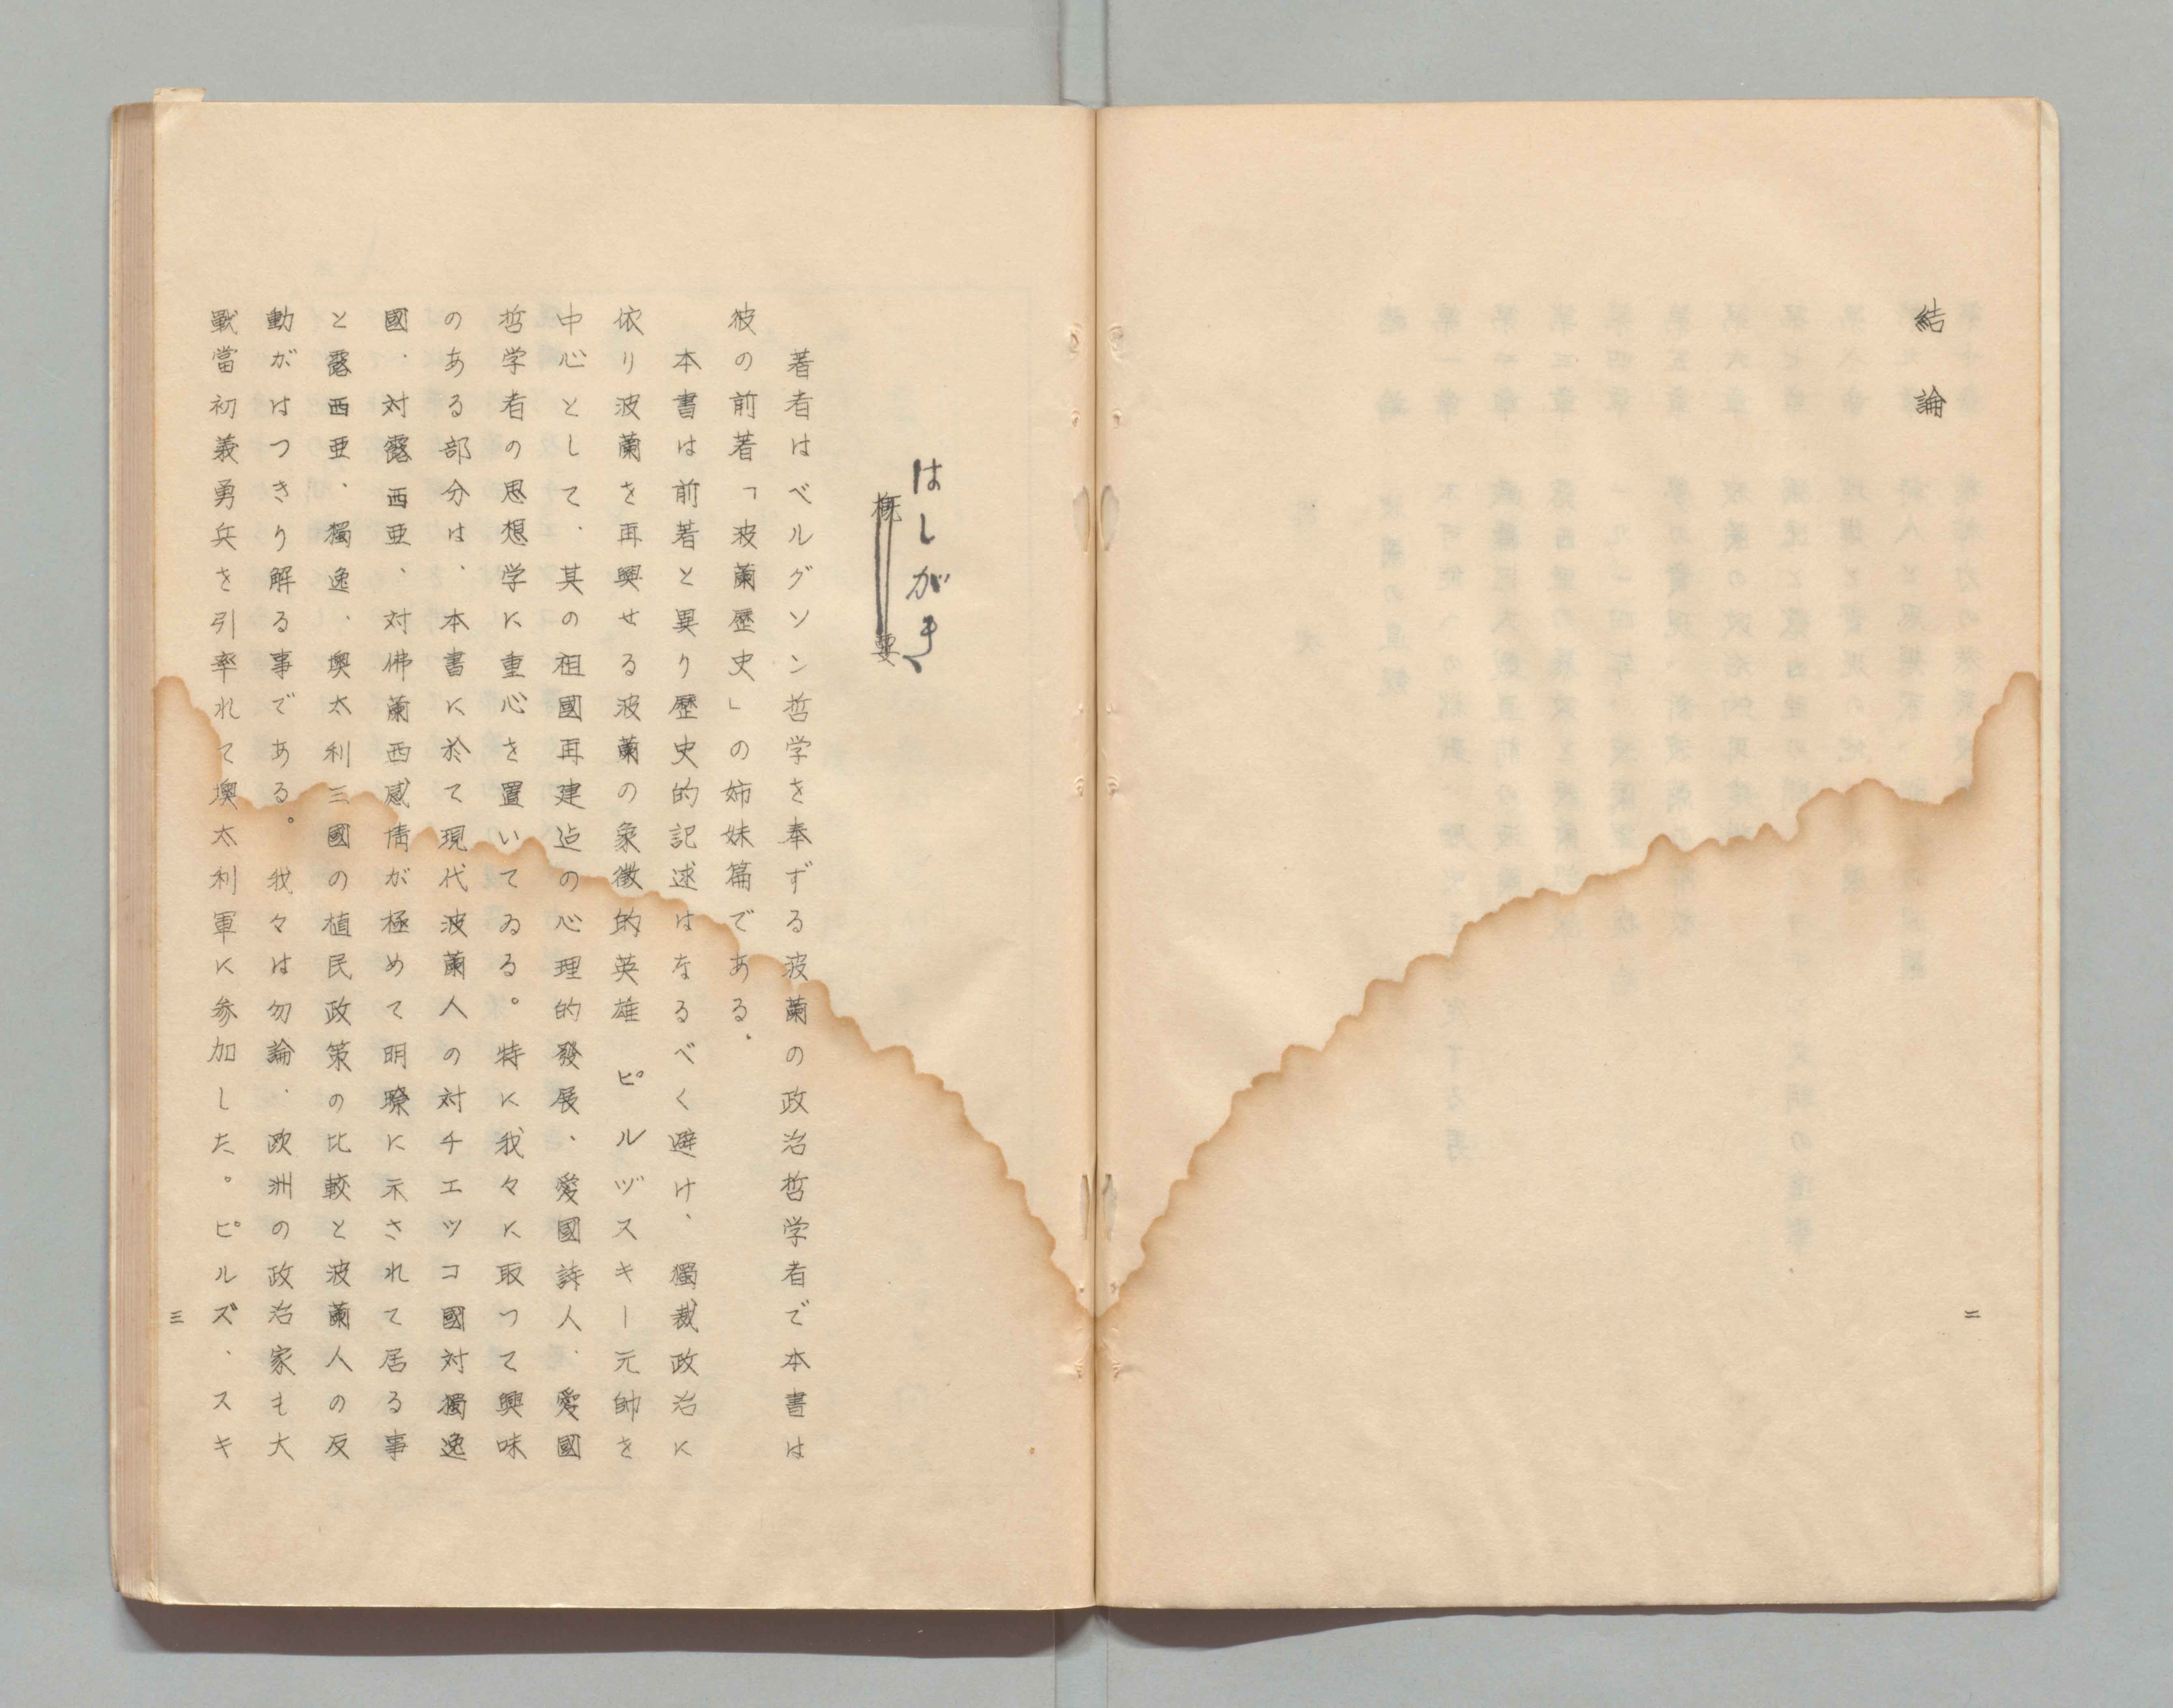 結論
二
はしがき
概要
著者はベルグソン哲学を奉ずる波蘭の政治哲学者で本書は
彼の前著「波蘭歴史」の姉妹篇である．
本書は前著と異り歴史的記述はなるべく避け、獨裁政治に
依り波蘭を再興せる波蘭の象徴的英雄 ピルヅスキー元帥を
中心として、其の祖國再建迠の心理的發展、愛國詩人、愛國
哲学者の思想学に重心を置いてゐる。特に我々に取つて興味
のある部分は、本書に於て現代波蘭人の対チエツコ國対獨逸
國．対露西亜、対佛蘭西感情が極めて明瞭に示されて居る事
と露西亜、獨逸、墺太利三國の植民政策の比較と波蘭人の反
動がはつきり解る事である。我々は勿論．欧洲の政治家も大
戰當初義勇兵を引率れて墺太利軍に参加した。ピルズ、スキ
三